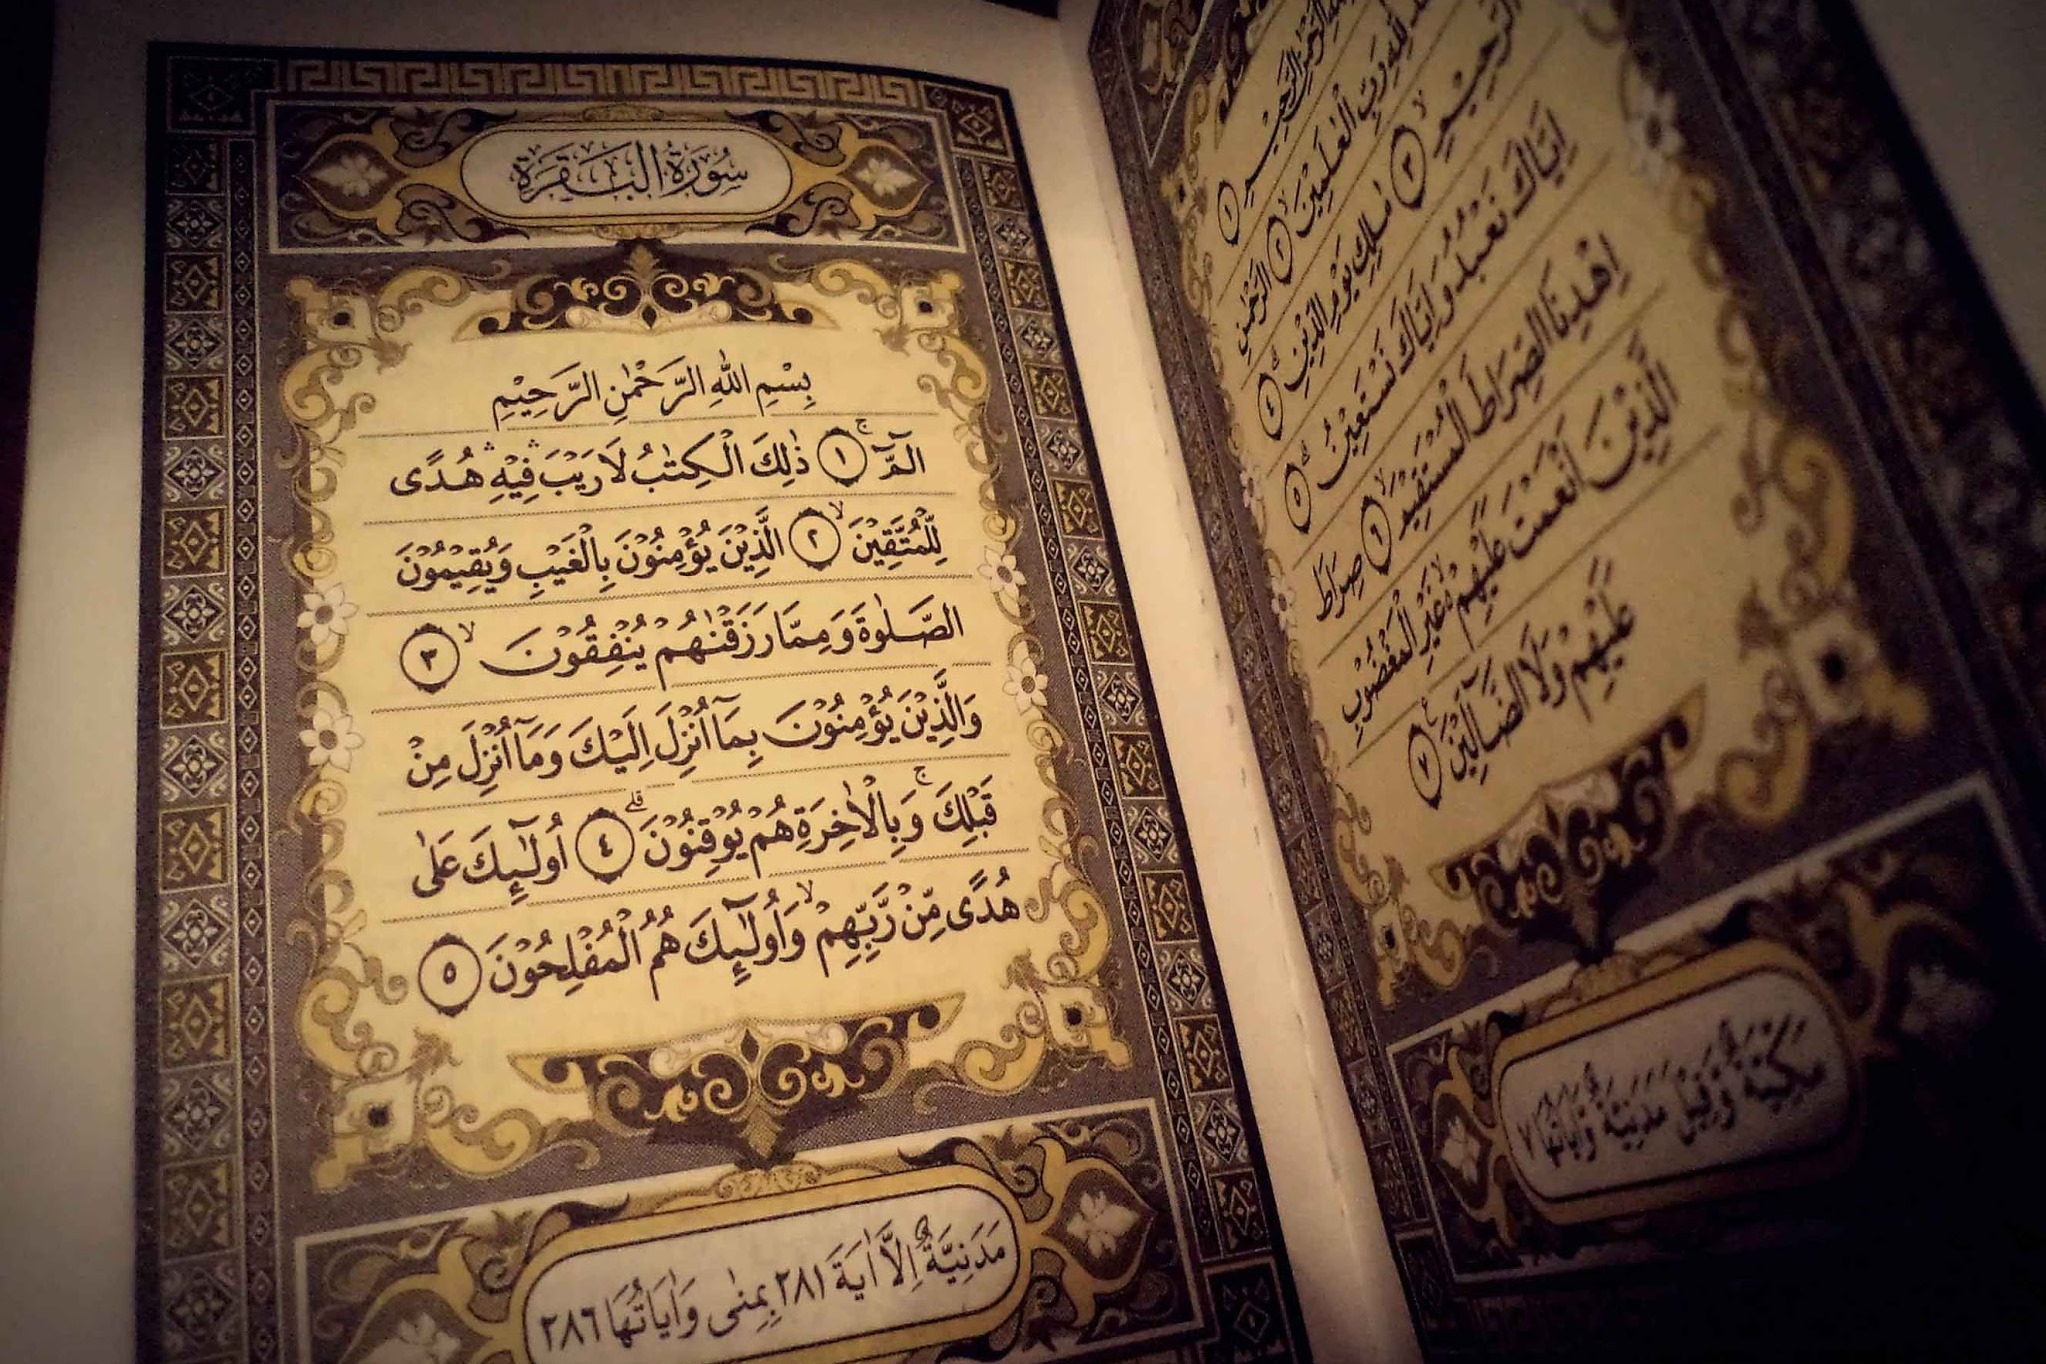 بِسْمِ اللّٰهِ الرَّحْمٰنِ الرَّحِيْمِ ١
لِلّٰهِ رَبِّ الْعٰلَمِيْنَ ٢ الرَّحْمٰنِ
الرَّحِيْمِ ٣ مٰلِكِ يَوْمِ الدِّيْنِ ٤
اِيَّاكَ نَعْبُدُ وَاِيَّاكَ نَسْتَعِيْنُ ٥
اِهْدِنَا الصِّرَاطَ الْمُسْتَقِيْمَ ٦ صِرَاطَ
الَّذِيْنَ اَنْعَمْتَ عَلَيْهِمْ غَيْرِ الْمَغْضُوْبِ
عَلَيْهِمْ وَلَا الضَّآلِّيْنَ ٧
مَكِّيَّةٌ وَقِيْلَ مَدَنِيَّةٌ وَاٰيَاتُهَا ٧
سُوْرَةُ الْبَقَرَةِ
بِسْمِ اللّٰهِ الرَّحْمٰنِ الرَّحِيْمِ
الٓمّٓ ۚ ١ ذٰلِكَ الْكِتٰبُ لَا رَيْبَ ۛ فِيْهِ ۛ هُدًى
لِّلْمُتَّقِيْنَ ۙ ٢ الَّذِيْنَ يُؤْمِنُوْنَ بِالْغَيْبِ وَيُقِيْمُوْنَ
الصَّلٰوةَ وَمِمَّا رَزَقْنٰهُمْ يُنْفِقُوْنَ ۙ ٣
وَالَّذِيْنَ يُؤْمِنُوْنَ بِمَآ اُنْزِلَ اِلَيْكَ وَمَآ اُنْزِلَ مِنْ
قَبْلِكَ ۚ وَبِالْاٰخِرَةِ هُمْ يُوْقِنُوْنَ ۗ ٤ اُولٰٓئِكَ عَلٰى
هُدًى مِّنْ رَّبِّهِمْ ۙ وَاُولٰٓئِكَ هُمُ الْمُفْلِحُوْنَ ٥
مَدَنِيَّةٌ اِلَّا اٰيَةَ ٢٨١ بِمِنٰى وَاٰيَاتُهَا ٢٨٦